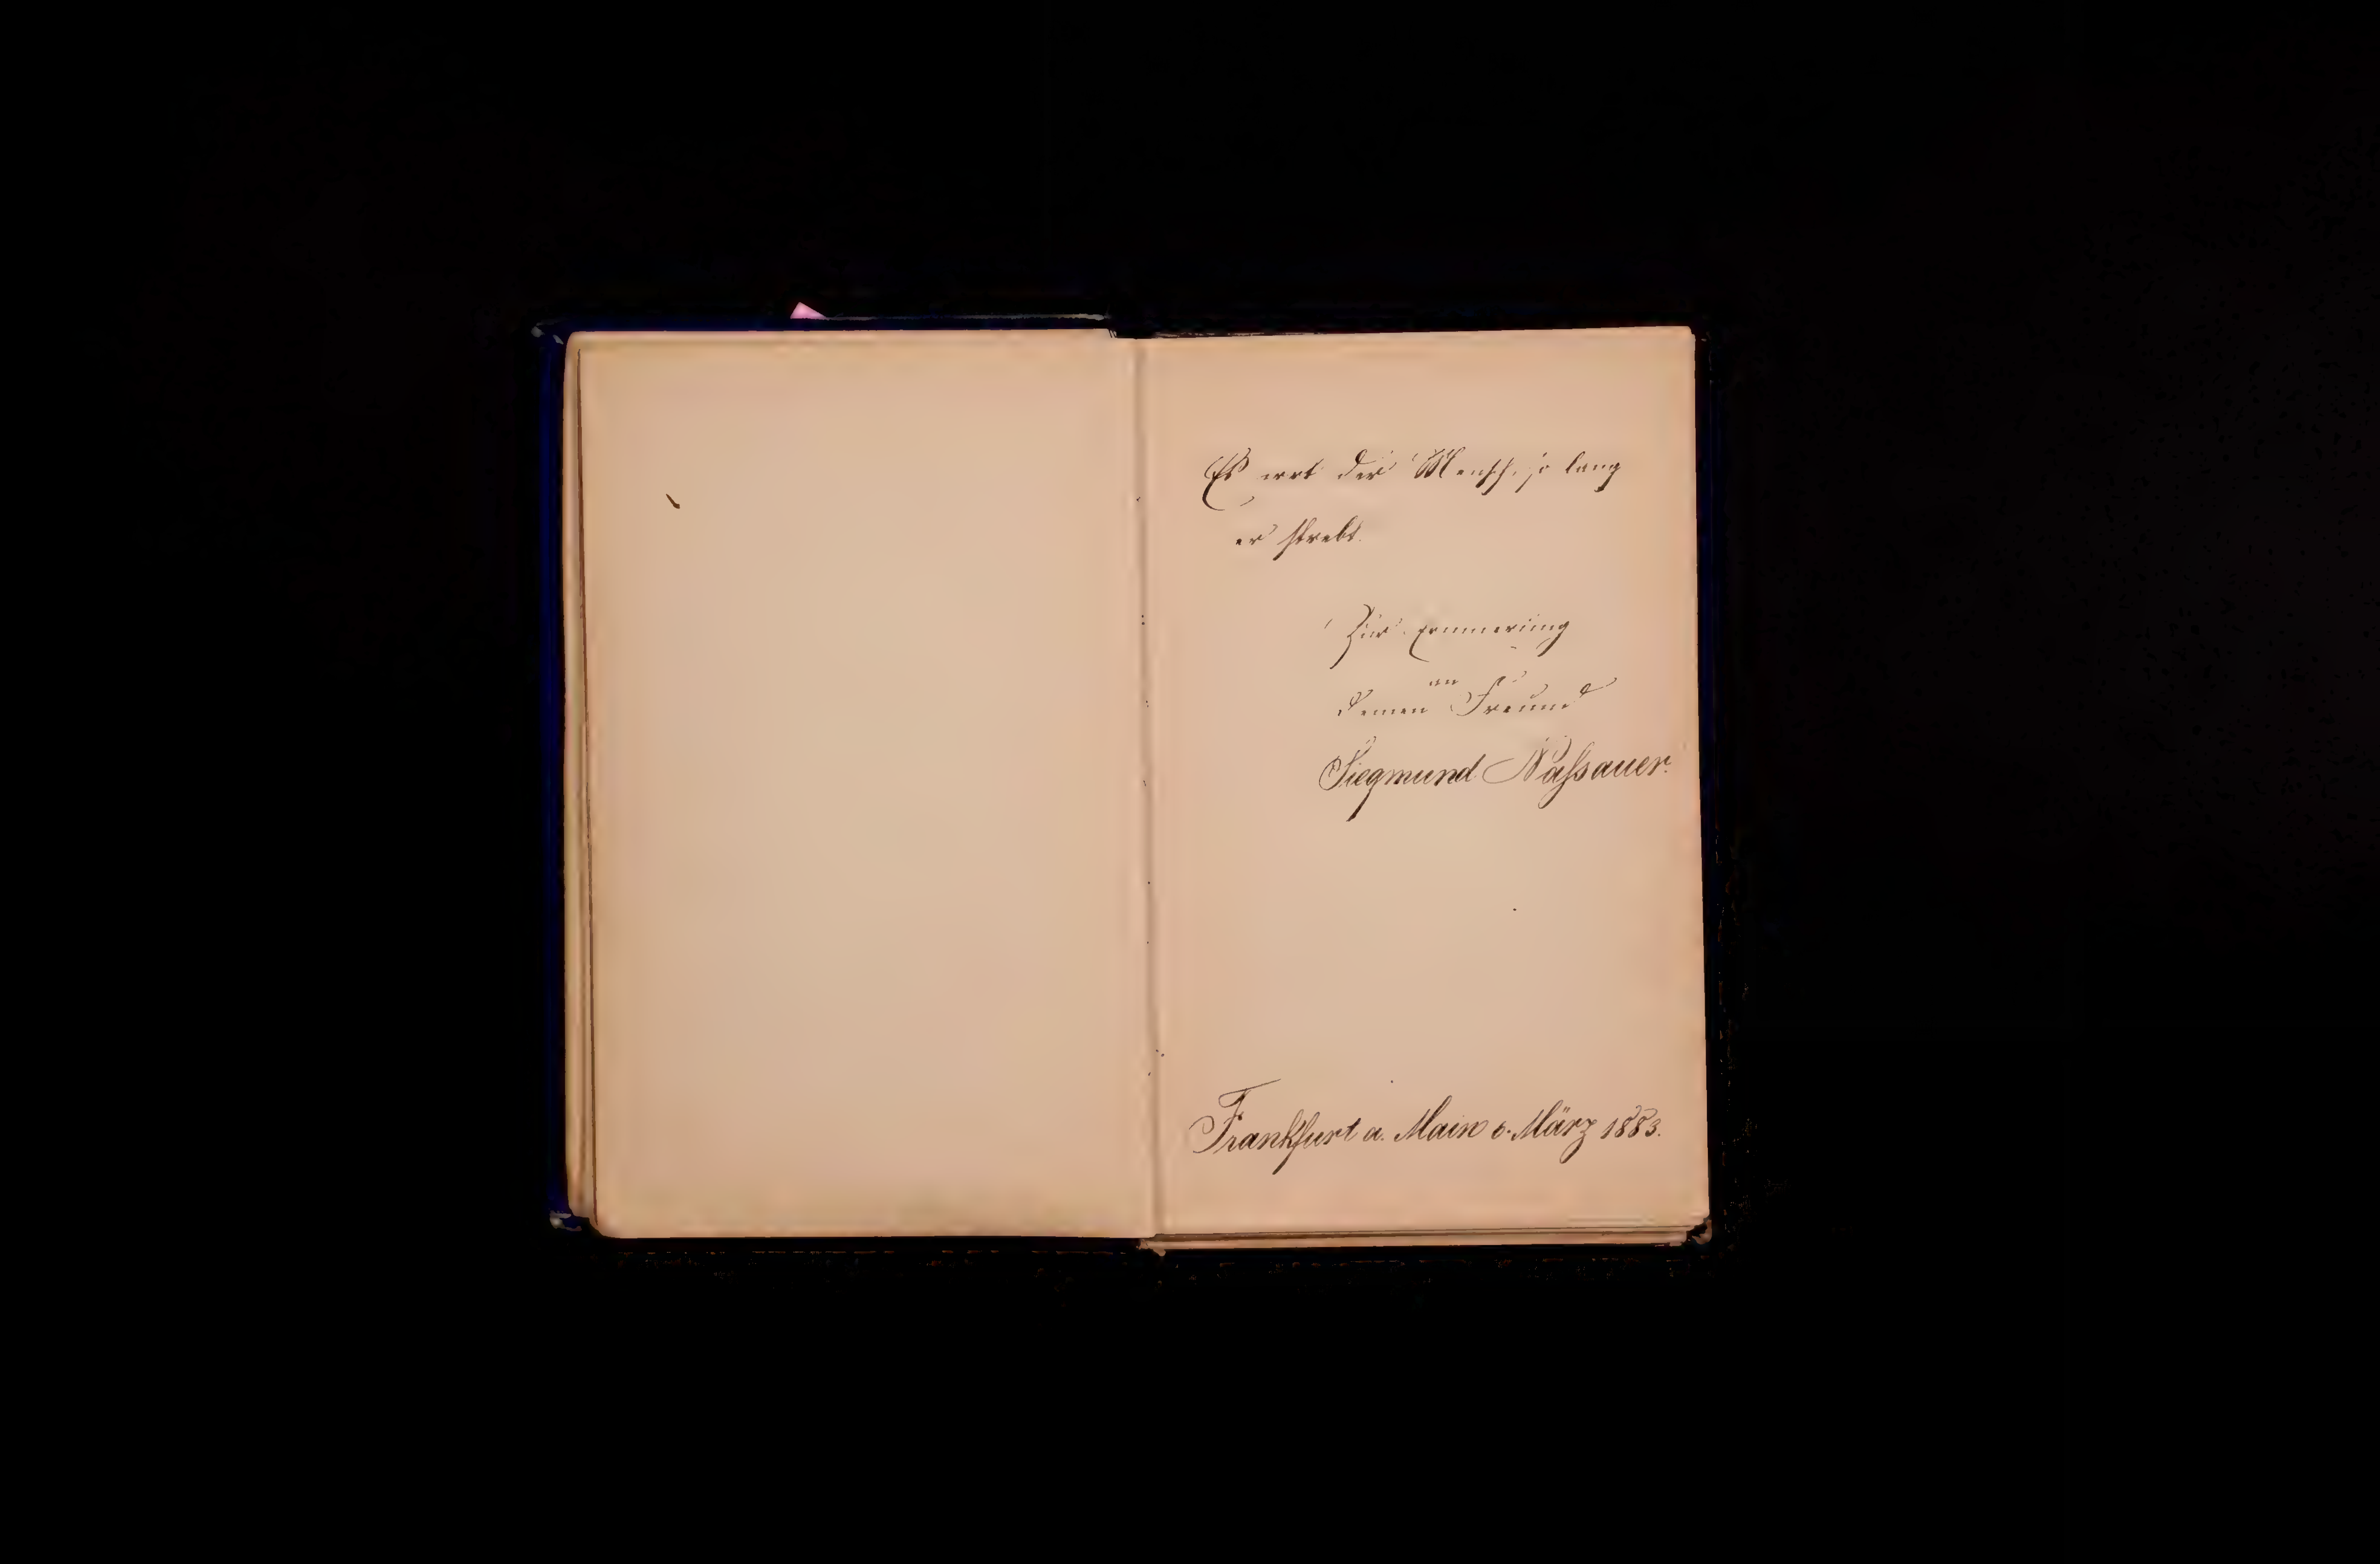 Es irrt der Mensch, so lang
er strebt.
Zur Erinnerung
an
Deinen Freund
Siegmund Nassauer.
Frankfurt a. Main 6. März 1883.